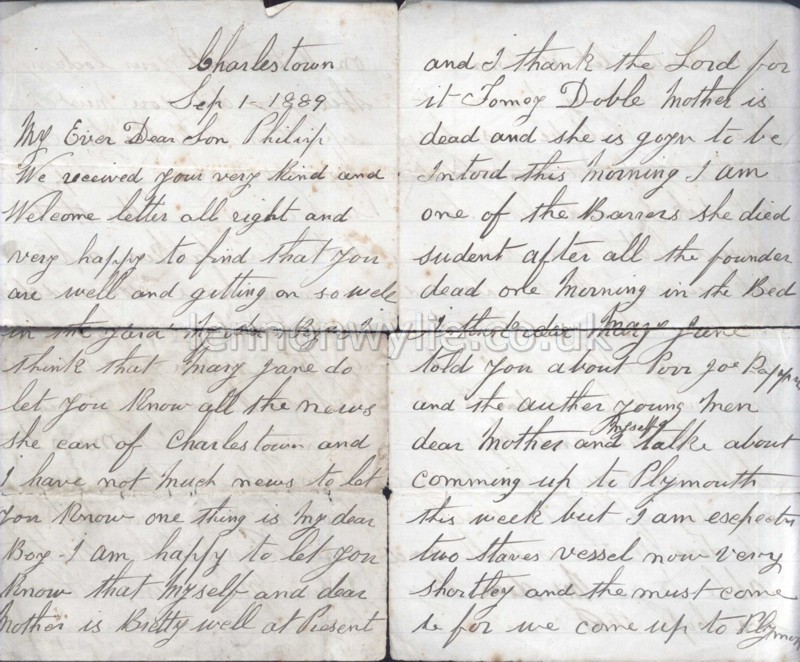 Charlestown
Sep 1 - 1889
My Ever Dear Son Philip
We received your very Kind and
Welcome letter all right and
very happy to find that you
are well and getting on so well
in the yard
think that Mary Jane do
let you Know all the news
she can of Charlestown and
I have not Much news to let
you Know one thing is My dear
Boy - I am happy to let you
Know that Myself and dear
Mother is Pretty well at Present
and I thank the Lord for
it Tomey Doble Mother is
dead and she is goyn to be
Intord this Morning I am
one of the Barrers she died
sudent after all the founder
dead one Morning in the Bed
I think dear Mary Jane
told you about Poor Joe
and the auther young Men
Myself
dear Mother and talke about
comming up to Plymouth
this week but I am
two staves vessel now very
shortley and the must come
for we come up to Plymouth
lennonwylie.co.uk